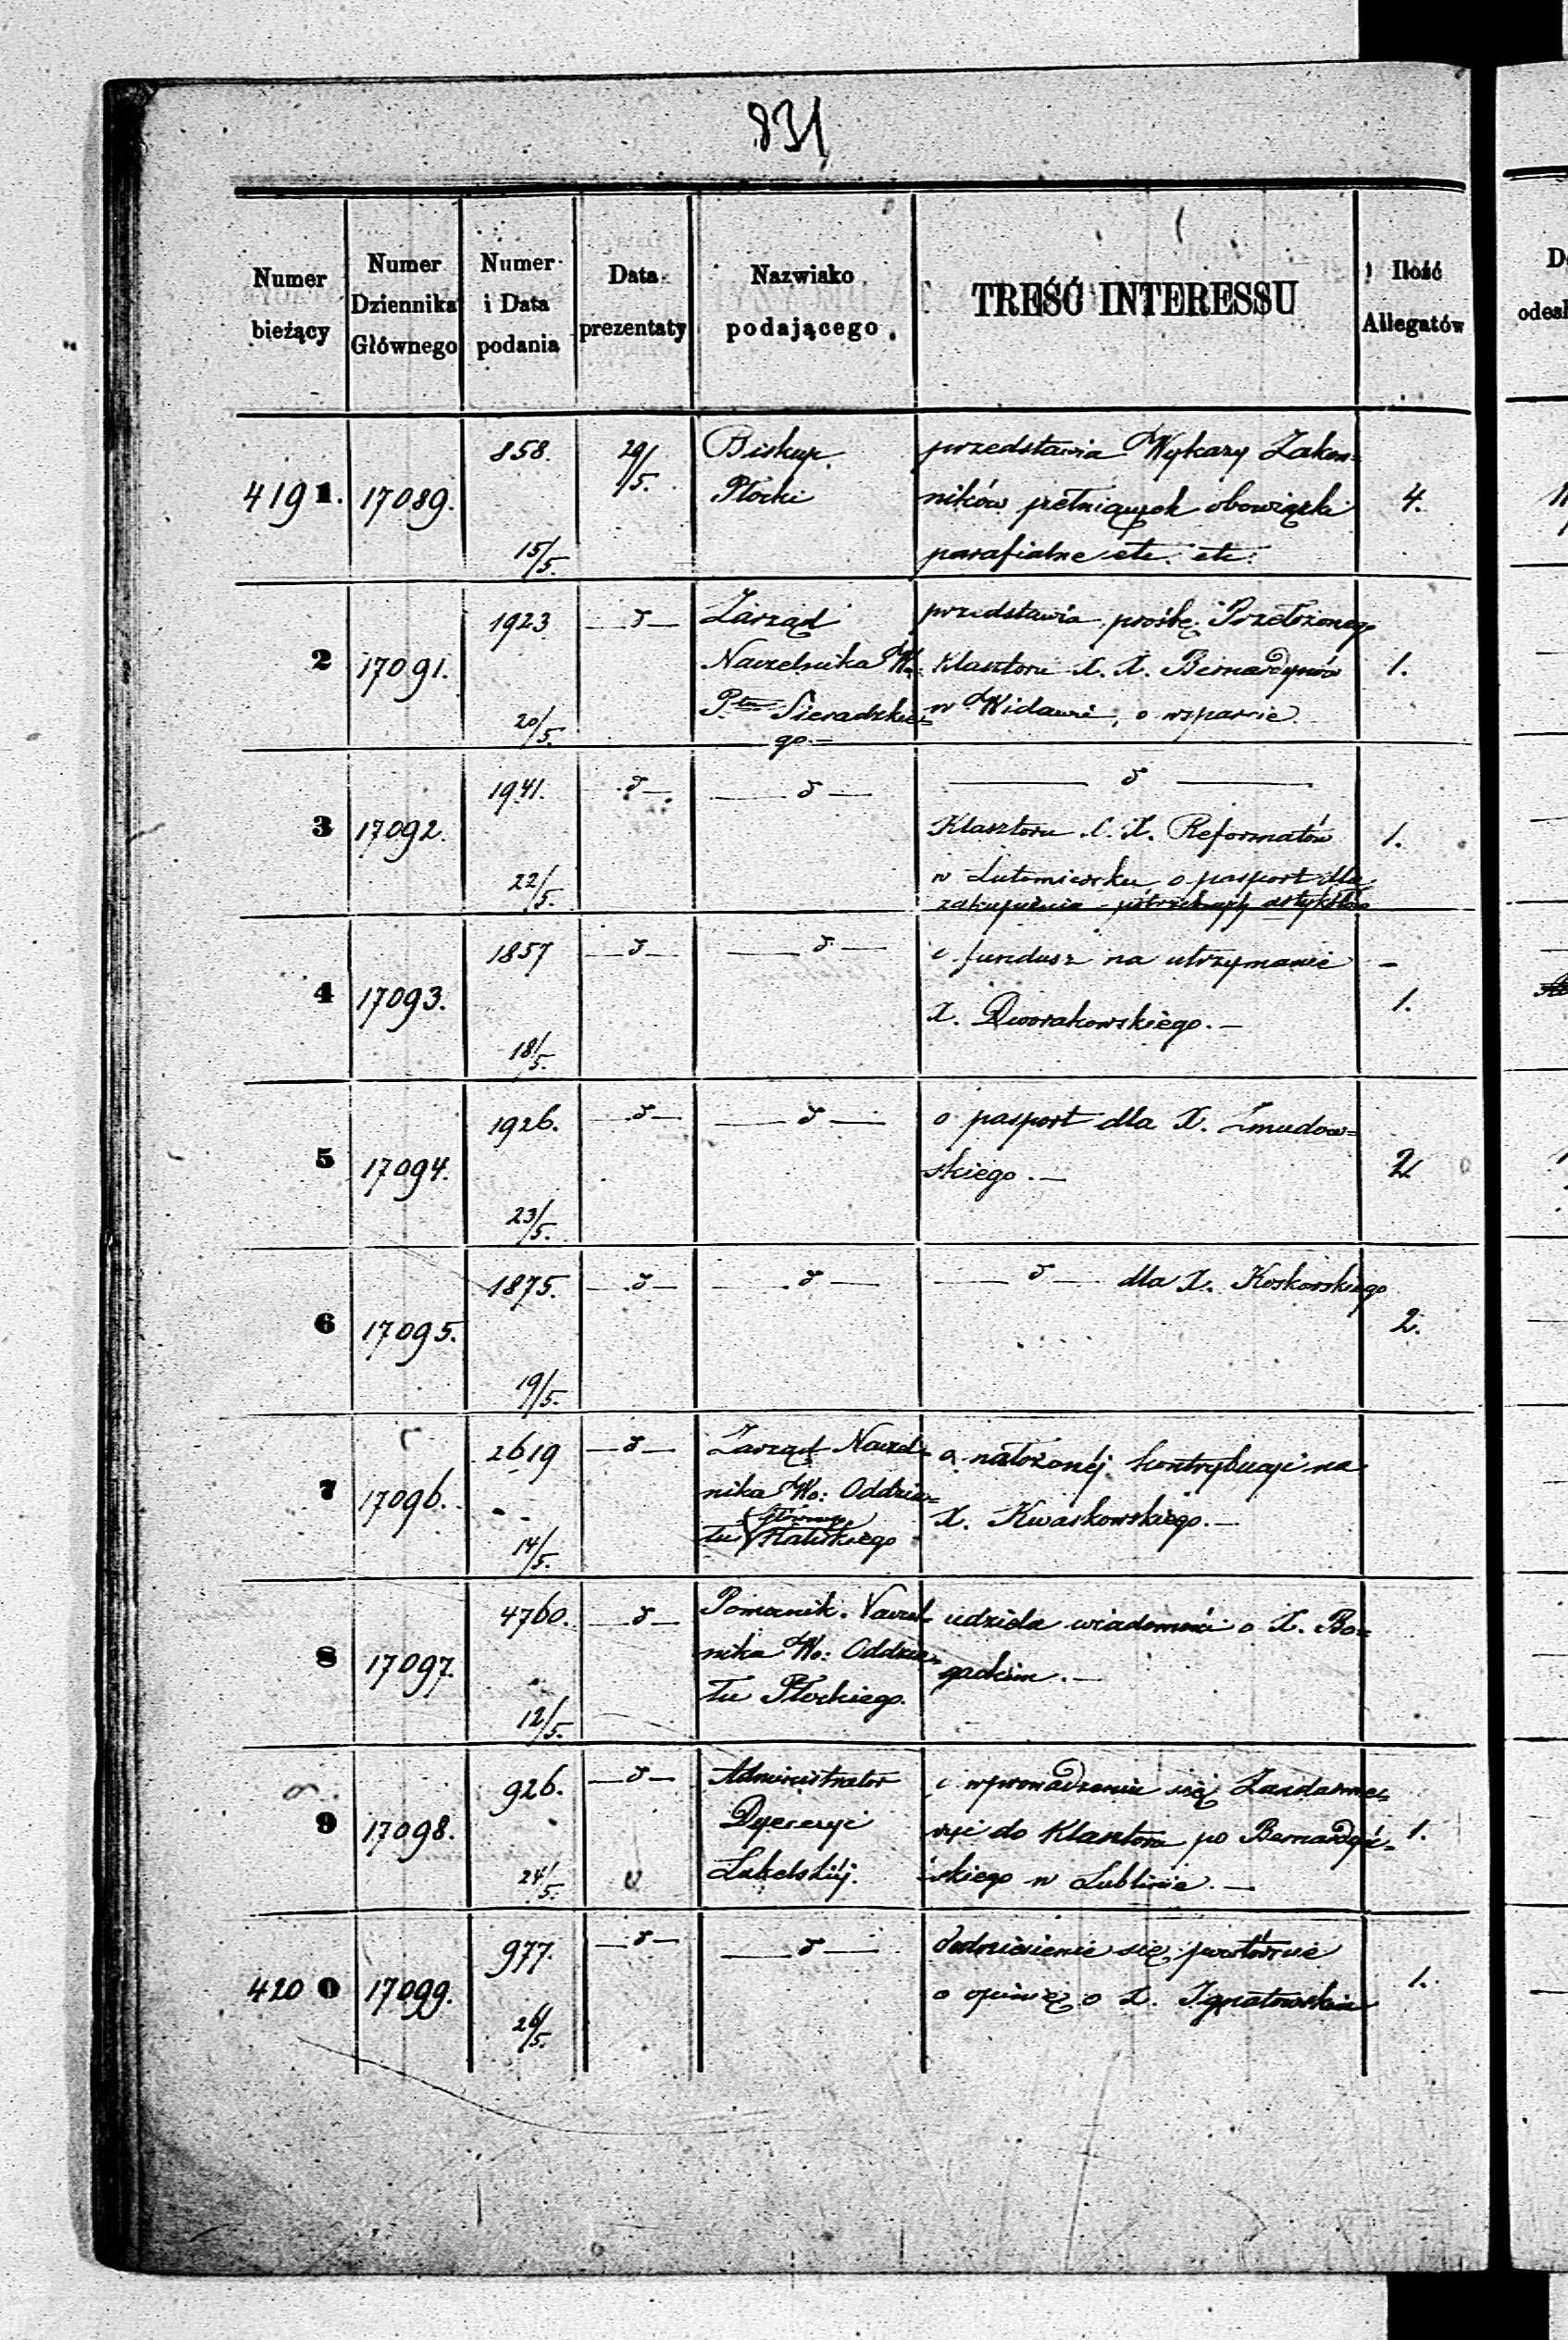 831
Numer bieżący
Numer Dziennika Głównego
Numer i Data podania
Data prezentaty
Nazwisko podającego
TREŚĆ INTERESSU
Ilość Allegatów
4191. 17089. 858. 15/5. 29/5.
Biskup
Płocki
przedstawia Wykazy Zakon=
ników pełniących obowiązki
parafialne etc. etc.
4.
2 17091. 1923 20/5. — d —
Zarząd
Naczelnika Wo=
Ptu Sieradzkie=
go. —
przedstawia prośbę Przełożonego
Klasztoru X. X. Bernardynów
w Widawie, o wsparcie
1.
3 17092. 1941. 22/5. — d — — d —
— d —
Klasztoru X. X. Reformatów
w Lutomiersku, o pasport dla
zakupienia potrzebnych artykułów
1.
4 17093. 1857 18/5. — d — — d —
o fundusz na utrzymanie
X. Dworakowskiego. —
1.
5 17094. 1926. 23/5. — d — — d —
o pasport dla X. Żmudow=
skiego. —
2
6 17095. 1875. 19/5. — d — — d —
— d — dla X. Koskowskiego
2.
7 17096. 2619 14/5. — d —
Zarząd Naczel=
nika Wo: Oddzia=
łu Kaliskiego
o nałożonéj kontrybucyi na
X. Kwaskowskiego. —
8 17097. 4760. 12/5. — d —
Pomocnik Naczel
nika Wo: Oddzia=
łu Płockiego.
udziela wiadomości o X. Bo=
gackim. —
9 17098. 926. 24/5. — d —
Administrator
Dyecezyi
Lubelskiéj.
o wprowadzeniu się Żandarme=
ryi do Klasztoru po Bernardyń=
skiego w Lublinie. —
1.
4200 17099. 977. 26/5. — d — — d —
się powtórnie
o opinię o X. Ignatowskim
1.
D
odesł